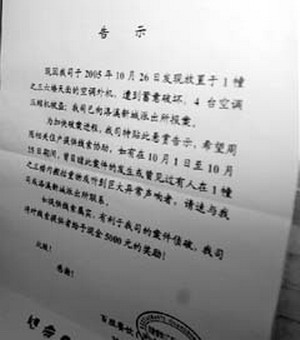 告 示
现因我司于 2005 年 10 月 26 日发现放置于 1 幢
之三六楼天出的空调外机，遭到蓄意破坏，4 台空调
压缩机被盗；我司已向洛溪新城派出所报案。
为加快破案进程，我司特贴此悬赏告示，希望周
围相关住户提供线索协助，如有在 10 月 1 日至 10 月
15 日期间，曾目睹此案件的发生或曾见过有人在 1 幢
之三楼内搬拉重物及听到巨大异常声响者，请速与我
司或洛溪新城派出所联系。
如提供线索属实，有利于我司的案件侦破，我司
将对线索提供者给予现金 5000 元的奖励！
此致！
感谢！